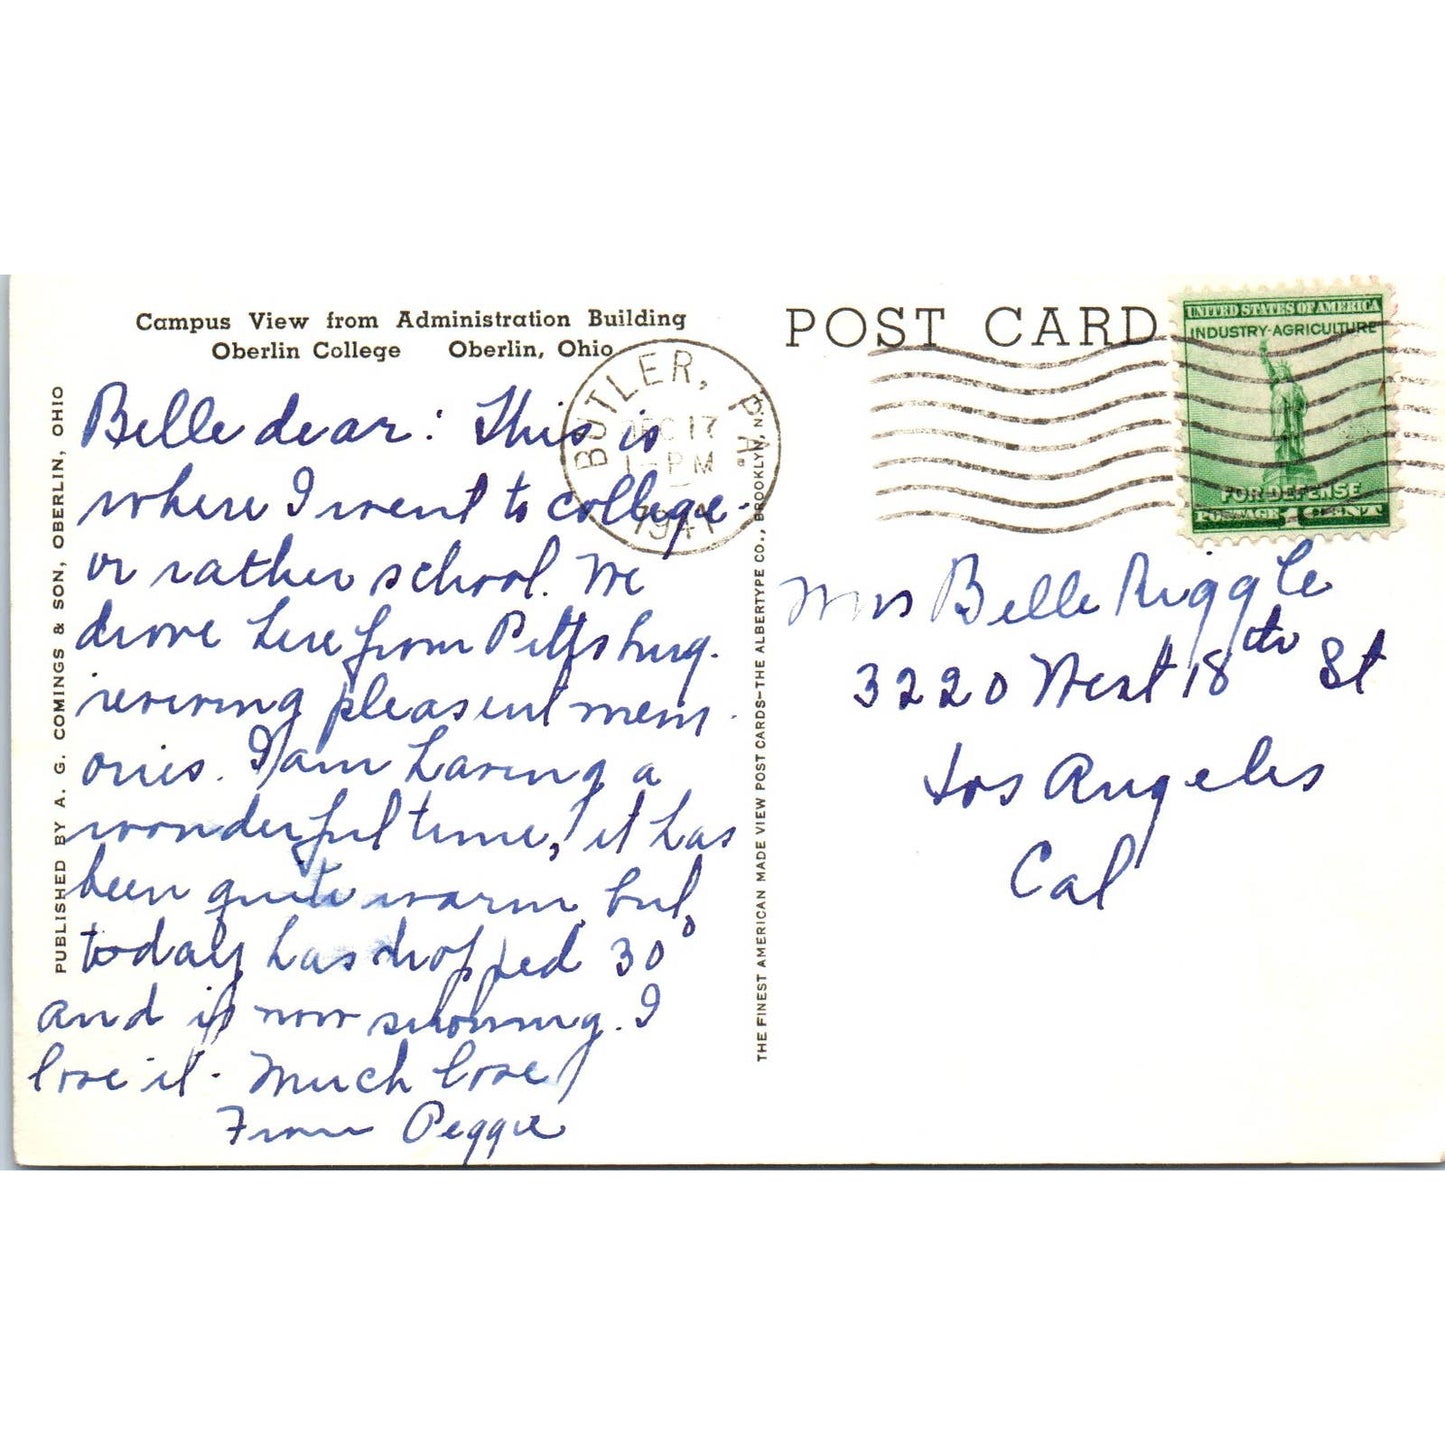 Campus View from Administration Building
Oberlin College Oberlin, Ohio
PUBLISHED BY A. G. COMINGS & SON, OBERLIN, OHIO
Belle dear: This is
where I went to college-
or rather school. We
drove here from Pittsburg.
reviving pleasent mem-
ories. I am having a
wonderful time, it has
been quite warm but,
today has dropped 30°
and is now snowing. I
love it. Much love
From Peggie
BUTLER, PA.
DEC 17
1-PM
1941
THE FINEST AMERICAN MADE VIEW POST CARDS-THE ALBERTYPE CO., BROOKLYN, N.Y.
POST CARD
UNITED STATES OF AMERICA
INDUSTRY-AGRICULTURE
FOR DEFENSE
POSTAGE 1 CENT
Mrs Belle Riggle
3220 West 18th St
Los Angeles
Cal